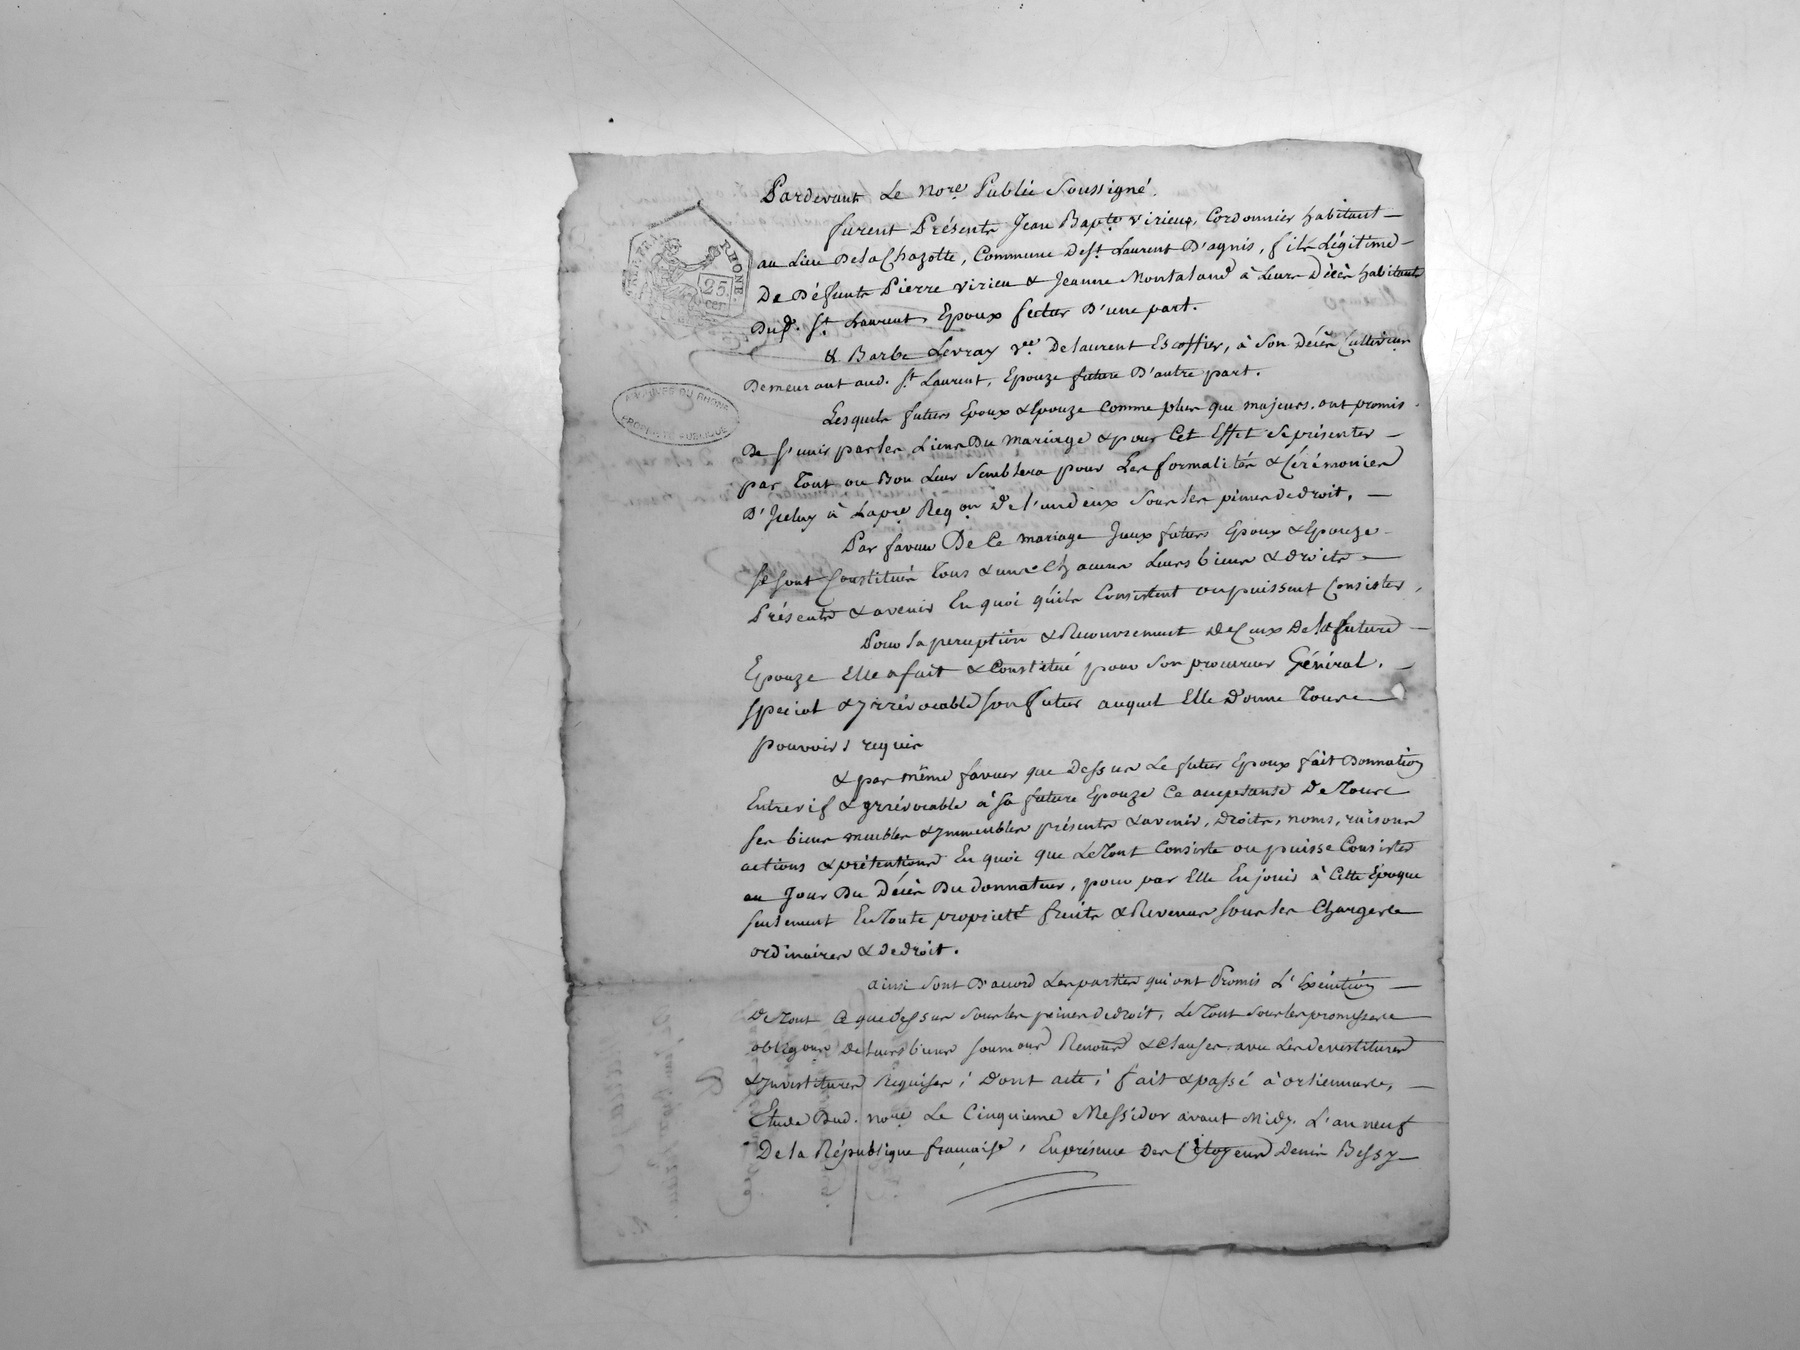 Pardevant Le nore Public Soussigné.
furent Présents Jean Bapte virieux, Cordonnier habitant
au Lieu De la Chazotte, Commune de St Laurent D'agnis, fils Légitime
De Défunts Pierre virieu & Jeanne Montaland à Leurs Décès habitants
Dud. St Laurent, Epoux futur D'une part.
& Barbe Levray vee. De laurent Escoffier, à son Décès Cultivateur
Demeurant aud. St Laurent, Epouze future D'autre part.
Lesquels futurs Epoux & Epouze comme plus que majeurs, ont promis
De s'unir par les Liens Du mariage & pour Cet Effet se présenter
par Tout ou Bon Leur semblera pour Les formalités & Cérémonies
D'Iceluy à La pre Reqon De l'un deux sous les peines de droit.
Par faveur De Ce mariage Iceux futurs Epoux & Epouze
se sont Constitués Tous & uns Chacuns Leurs biens & droits
Présents & avenir En quoi qu'ils Consistent ou puissent Consister,
Pour la perception & Recouvrement De Ceux De la future
Epouze Elle a fait & Constitué pour Son procureur Général,
special & Irrévocable son futur auquel Elle Donne Tous
pouvoirs requis
& par même faveur que Dessus Le futur Epoux fait Donnation
Entrevif & Irrévocable à sa future Epouze Ce acceptante De Tous
ses biens meubles & Immeubles présents & avenir, Droits, noms, raisons
actions & prétentions En quoi que Le Tout Consiste ou puisse Consister
au Jour Du Décès Du Donnateur, pour par Elle En jouir à Cette Epoque
seulement En Toute propriété fruits & Revenus sous les Charges
ordinaires & de droit.
ainsi sont D'accord Les parties qui ont Promis L'Exécution
De Tout Ce que Dessus sous les peines de droit, Le Tout sous les promesses
obligons De Leurs biens soumons Renons & Clauses avec Les devestitures
& Investitures Requises; Dont acte; fait & passé à orlienas,
Etude Dud. nore Le Cinquieme Messidor avant Midy L'an neuf
De la République française, En présence Des Citoyens Denis Bessy
RHONE.
25
ARCHIVES DU RHONE
PROPRIÉTÉ PUBLIQUE